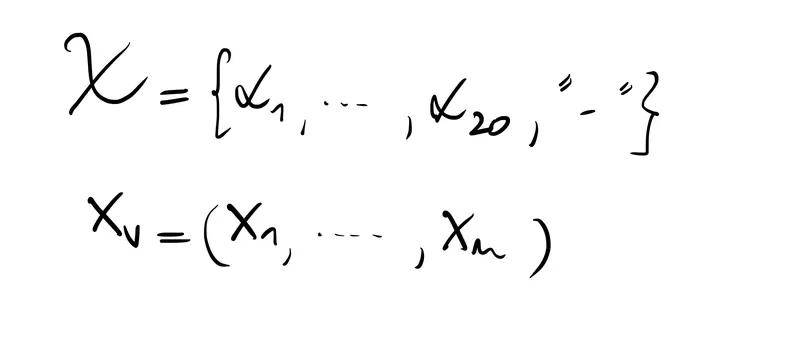 𝒳 = {α₁, ..., α₂₀, "-"}
Xᵥ = (X₁, ...., Xₙ)